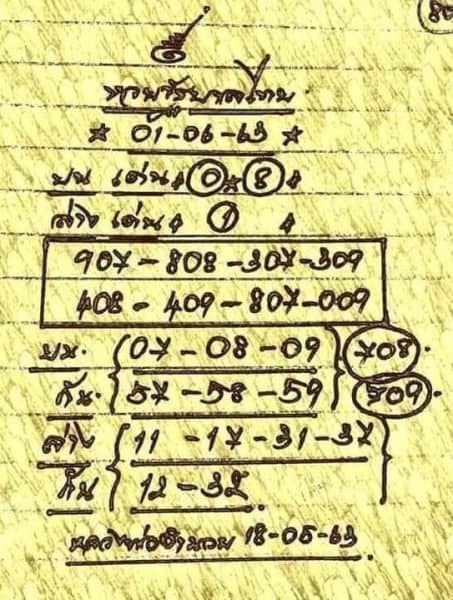 หวยรัฐบาลไทย
☆ 01-06-63 ☆
บน เด่น 0 ☆ 8
ล่าง เด่น 1
907-808-307-309
408-409-807-009
บน 07-08-09 708
กัน 57-58-59 509
ล่าง 11-17-31-37
กัน 12-32
18-05-63